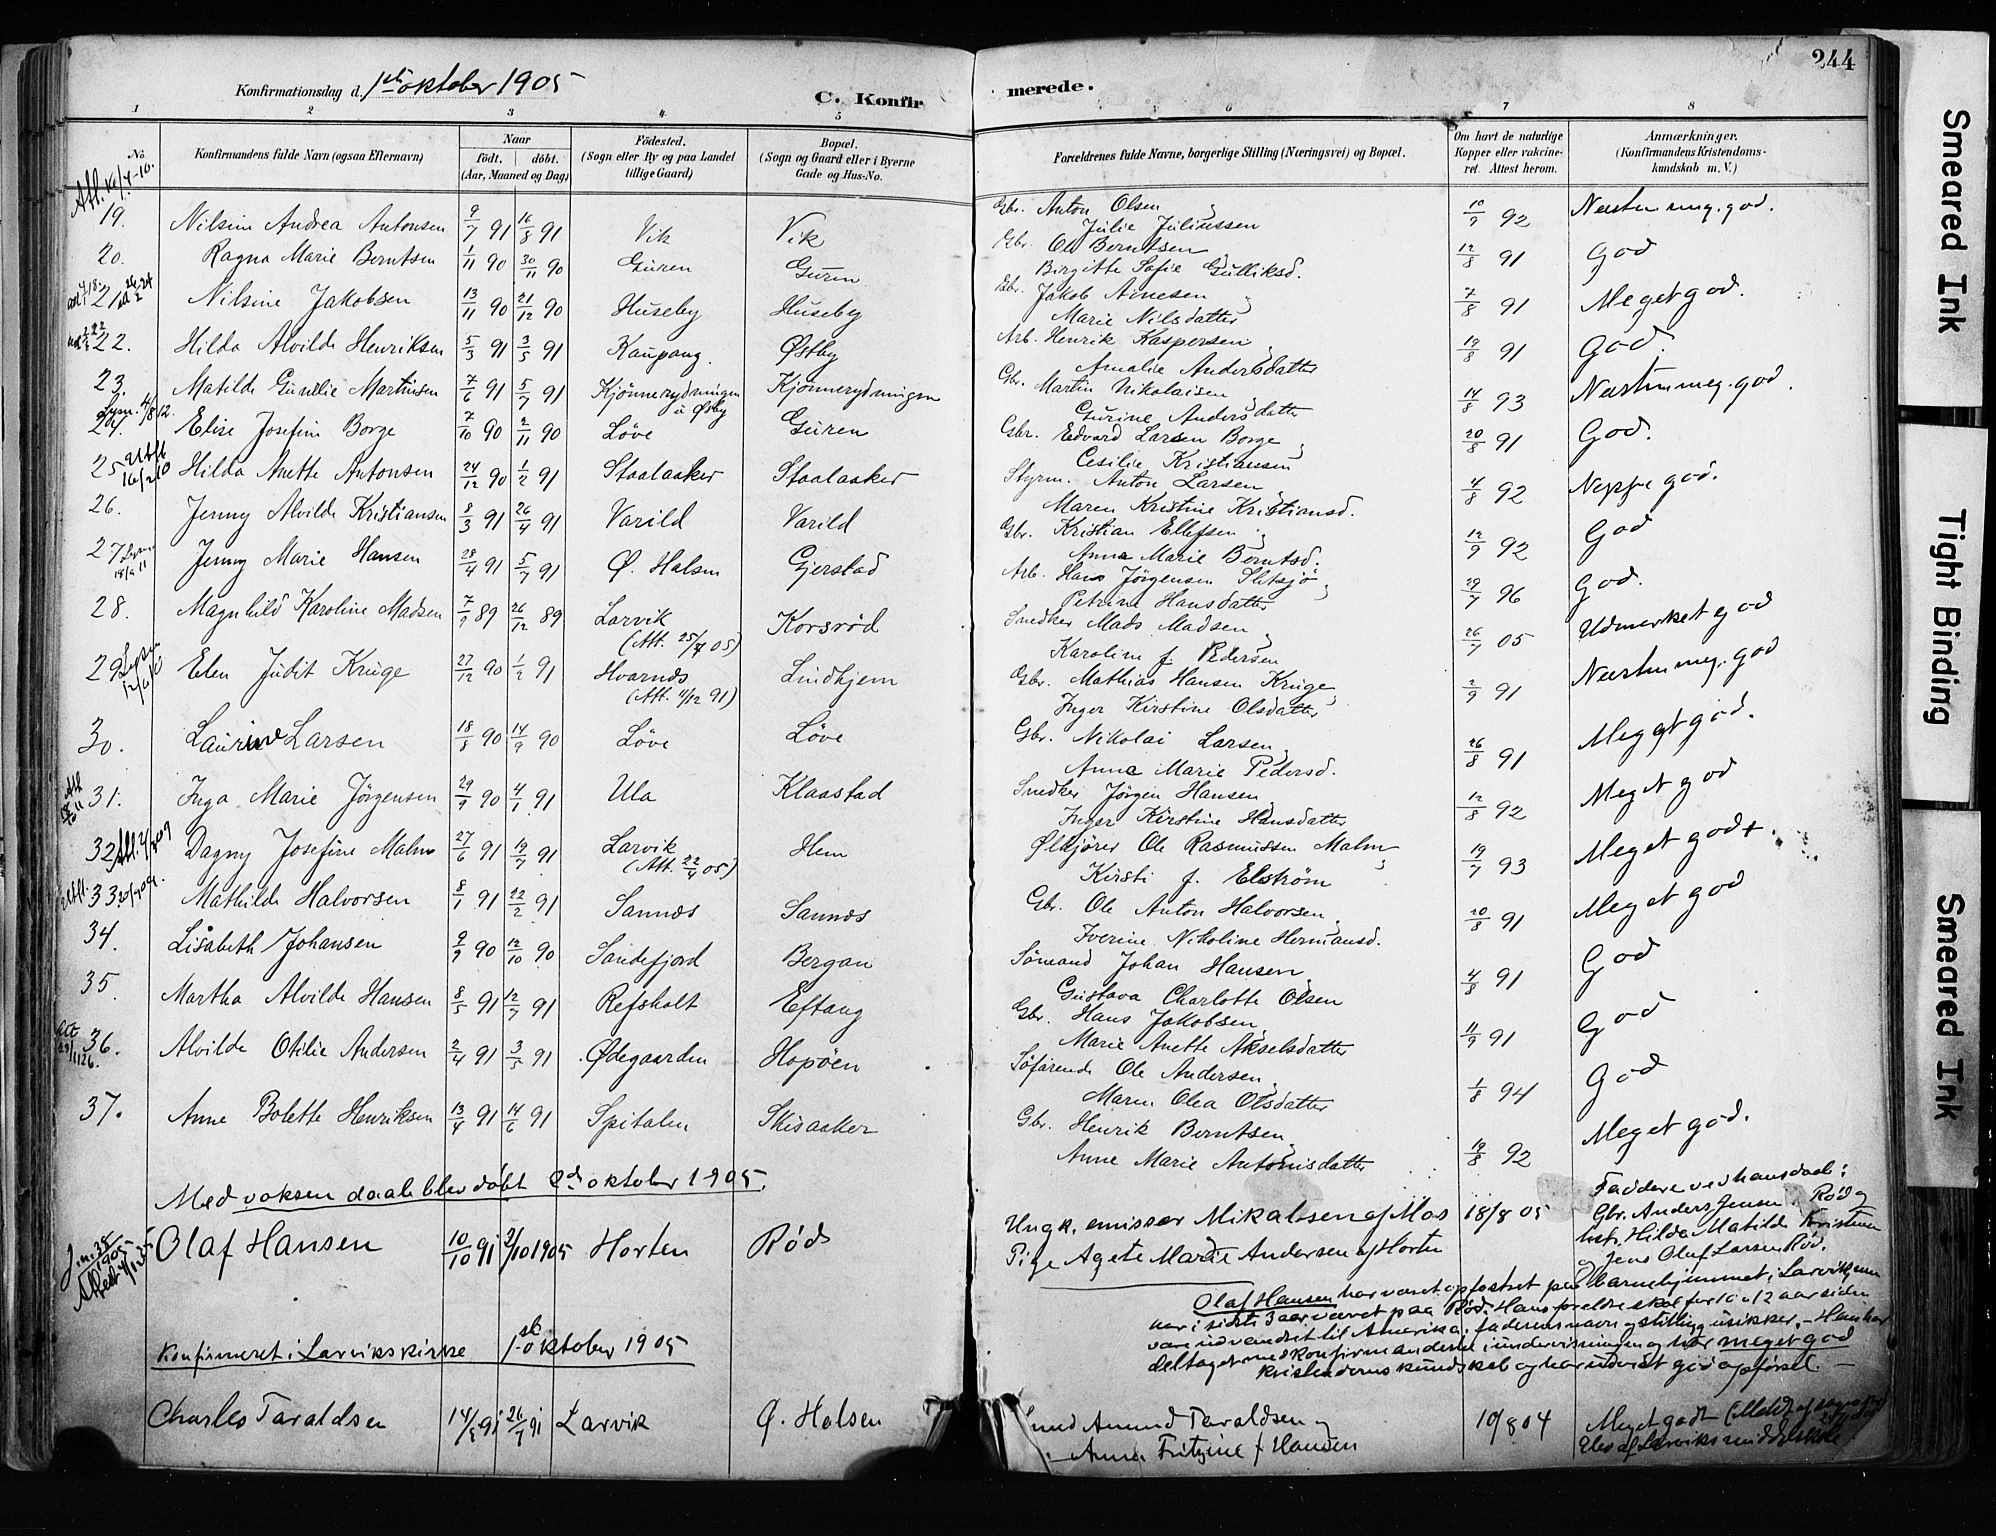 244
Konfirmationsdag d. 1ste oktober 1905
C. Konfirmerede.
1 2 3 4 5 6 7 8
No. Konfirmandens fulde Navn (ogsaa Efternavn) Naar født. døbt. (Aar, Maaned og Dag) Fødested. (Sogn eller By og paa Landet tillige Gaard) Bopæl. (Sogn og Gaard eller i Byerne Gade og Hus-No. Forældrenes fulde Navne, borgerlige Stilling (Næringsvei) og Bopæl. Om havt de naturlige Kopper eller vakcineret. Attest herom. Anmærkninger. (Konfirmandens Kristendomskundskab m. V.)
19. Nilsine Andrea Antonsen 9/7 91 16/8 91 Vik Vik Gbr. Anton Olsen, Julie Juliussen 10/9 92 Næsten meg. god.
20. Ragna Marie Berntsen 1/11 90 30/11 90 Guren Guren Gbr. Ole Berntsen, Birgitte Sofie Gulliksd. 12/8 91 God
21. Nilsine Jakobsen 13/11 90 21/12 90 Huseby Huseby Gbr. Jakob Arnesen, Marie Nilsdatter 7/8 91 Meget god.
22. Hilda Alvilde Henriksen 5/3 91 3/5 91 Kaupang. Østby Arb. Henrik Kaspersen, Amalie Andersdatter 19/8 91 God.
23. Matilde Gunelie Martinsen 7/6 91 5/7 91 Kjønnerydningen u. Østby Kjønnerydningen Gbr. Martin Nikolaisen, Gurine Andersdatter 14/8 93 Næsten meg. god.
24. Elise Josefine Borge 7/10 90 2/11 90 Løve Guren Gbr. Edvard Larsen Borge, Cesilie Kristiansen 20/8 91 God.
25. Hilda Anette Antonsen 24/12 90 1/2 91 Staalaaker Staalaaker Styrm. Anton Larsen, Maren Kristine Kristiansd. 4/8 92 Neppe god.
26. Jenny Alvilde Kristiansen 8/3 91 26/4 91 Varild Varild Gbr. Kristian Ellefsen, Anna Marie Berntsd. 12/9 92 God
27 Jenny Marie Hansen 28/4 91 5/7 91 Ø. Halsen Gjerstad Arb. Hans Jørgensen Sletsjø, Petrine Hansdatter 29/7 96 God.
28. Magnhild Karoline Madsen 7/9 89 26/12 89 Larvik (Att. 25/7 05) Korsrød Snedker Mads Madsen, Karoline f. Pedersen 26/7 05 Udmerket god
29 Elen Judit Kruge 27/12 90 1/2 91 Hvarnes (Att. 11/12 91) Lindhjem Gbr. Mathias Hansen Kruge, Inger Kirstine Olsdatter 2/9 91 Næsten meg. god
30. Laurine Larsen 18/8 90 14/9 90 Løve Løve Gbr. Nikolai Larsen, Anna Marie Pedersd. 26/8 91 Meget god.
31. Inga Marie Jørgensen 29/9 90 4/1 91 Ula Klaastad Snedker Jørgen Hansen, Inger Kirstine Hansdatter 12/8 92 Meget god
32 Dagny Josefine Malm 27/6 91 19/7 91 Larvik (Att. 22/4 05) Hem Ølkjører Ole Rasmussen Malm, Kirsti f. Elstrøm 19/7 93 Meget god +
33 Mathilde Halvorsen 8/1 91 22/2 91 Sannes Sannes Gbr. Ole Anton Halvorsen, Iverine Nikoline Hermansd. 20/8 91 Meget god
34. Lisabeth Johansen 9/9 90 12/10 90 Sandefjord Bergan Sømand Johan Hansen Gustava Charlotte Olsen 4/8 91 God
35. Martha Alvilde Hansen 8/5 91 12/7 91 Refsholt Eftang Gbr. Hans Jakobsen, Marie Anette Akselsdatter 11/9 91 God
36. Alvilde Otilie Andersen 2/4 91 3/5 91 Ødegaarden Hopøen Søfarende Ole Andersen, Maren Olea Olsdatter 1/8 94 God
37. Anne Bolette Henriksen 13/4 91 14/6 91 Spitalen Skisaaker Gbr. Henrik Berntsen, Anne Marie Antonisdatter 19/8 92 Meget god.
Med voksen daab blev døbt 2den oktober 1905.
Olaf Hansen 10/10 91 2/10 1905 Horten Rød Ungk. emissær Mikalsen af Mos Pige Agete Marie Andersen af Horten 18/8 05
Faddere ved hans daab:
Gbr. Anders Jensen Rød og
hstr. Hilda Matilde Kristine
og Jens Olaf Larsen Rød.
Olaf Hansen har været opfostret paa Barnehjemmet i Larvik, men
har i sidste 3 aar været paa Rød. Hans foreldre skal for 10 a 12 aar siden
være udvandret til Amerika; faderens navn og stilling usikker. – Han har
deltaget med konfirmanderne i undervisningen og har meget god
kristendomskundskab og har udvist god opførsel. –
Konfirmeret i Larviks kirke 1ste oktober 1905
Charles Taraldsen 14/8 91 Larvik Ø. Halsen Smed Amund Taraldsen og Anna Fritzine f Hansen 10/8 04 Meget godt
Elev af Larviks middelskole
Smeared Ink
Tight Binding
Smeared Ink